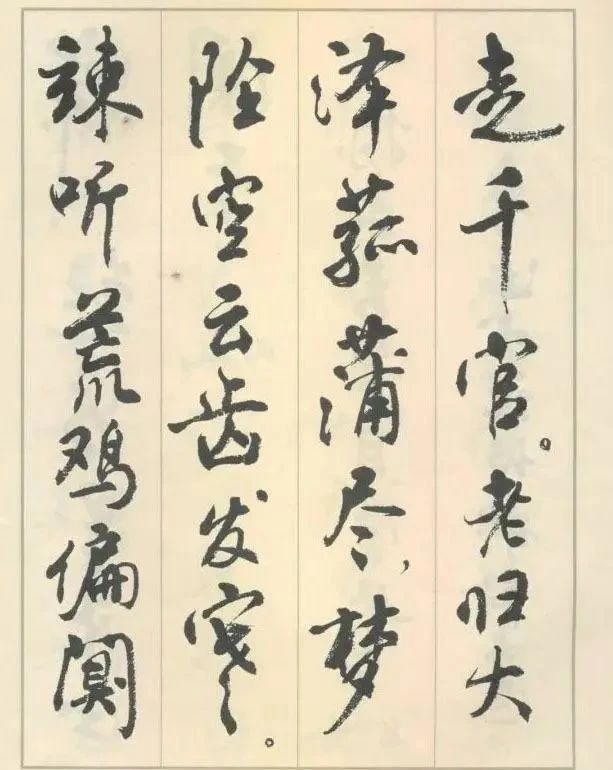 走千官。老归大
泽菰蒲尽,梦
坠空云齿发寒。
竦听荒鸡偏阒